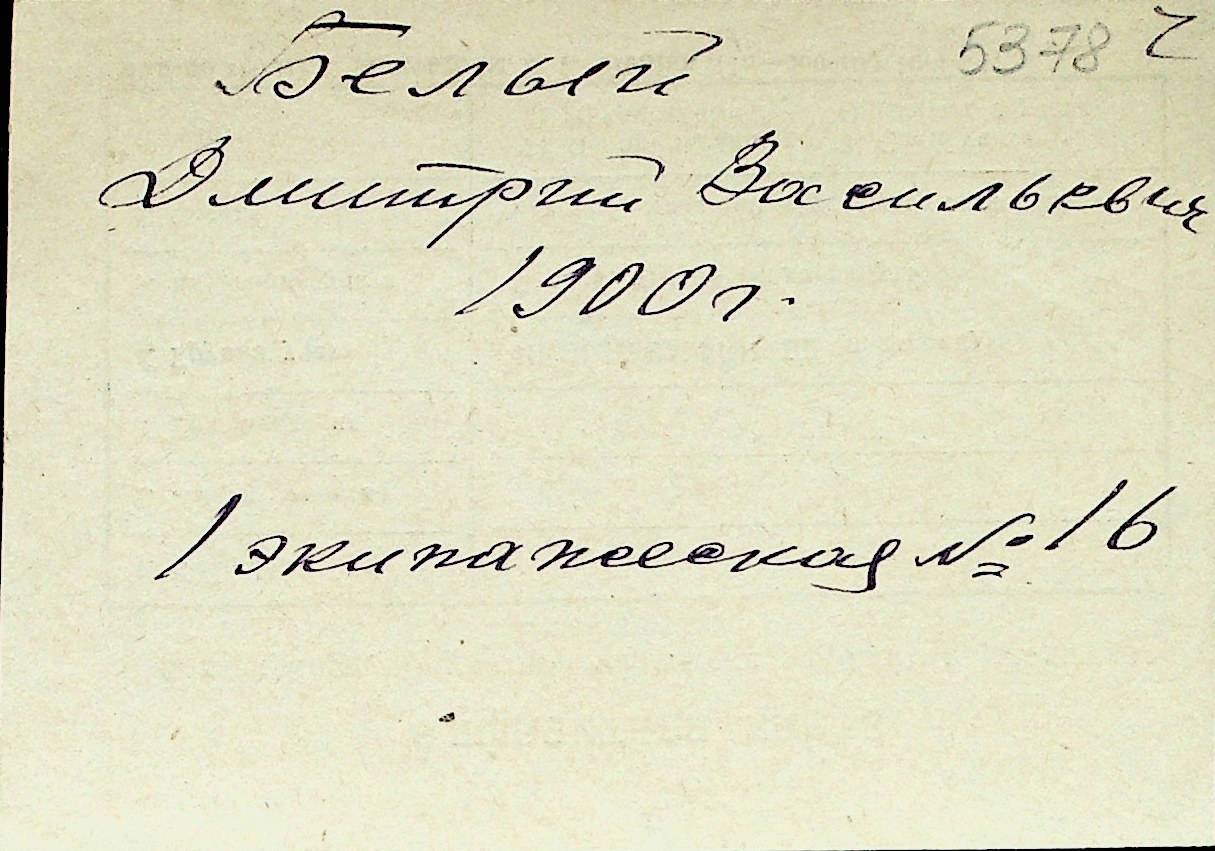 5378 ч
Белый
Дмитрий Васильквич
1900 г.
1 экипажеская № 16